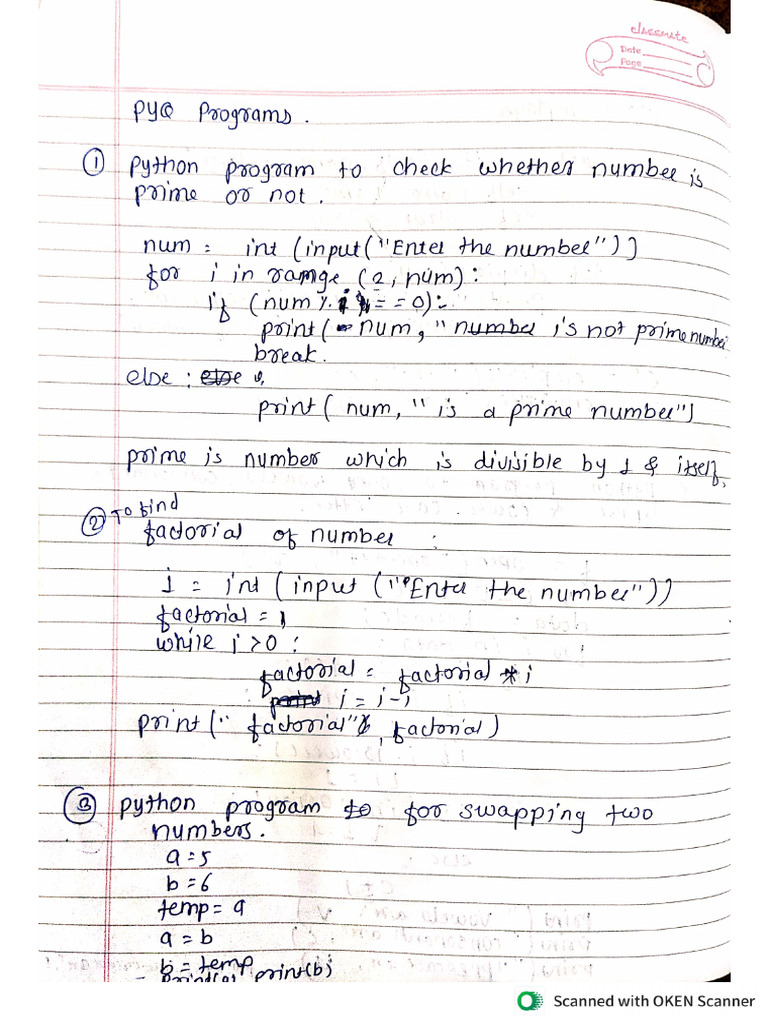 classmate
Date
Page
PYQ Programs.
① Python program to check whether number is
prime or not.
num = int (input("Enter the number"))
for i in range (2, num):
if (num % i == 0):
print( num, " is not prime number
break.
else :
print( num, " is a prime number")
prime is number which is divisible by 1 & itself.
② To find
factorial of number :
i = int ( input ("Enter the number"))
factorial = 1
while i > 0 :
factorial = factorial * i
i = i-1
print(" factorial" , factorial )
③ python program for swapping two
numbers.
a = 5
b = 6
temp = a
a = b
b = temp
print(a) print(b)
Scanned with OKEN Scanner